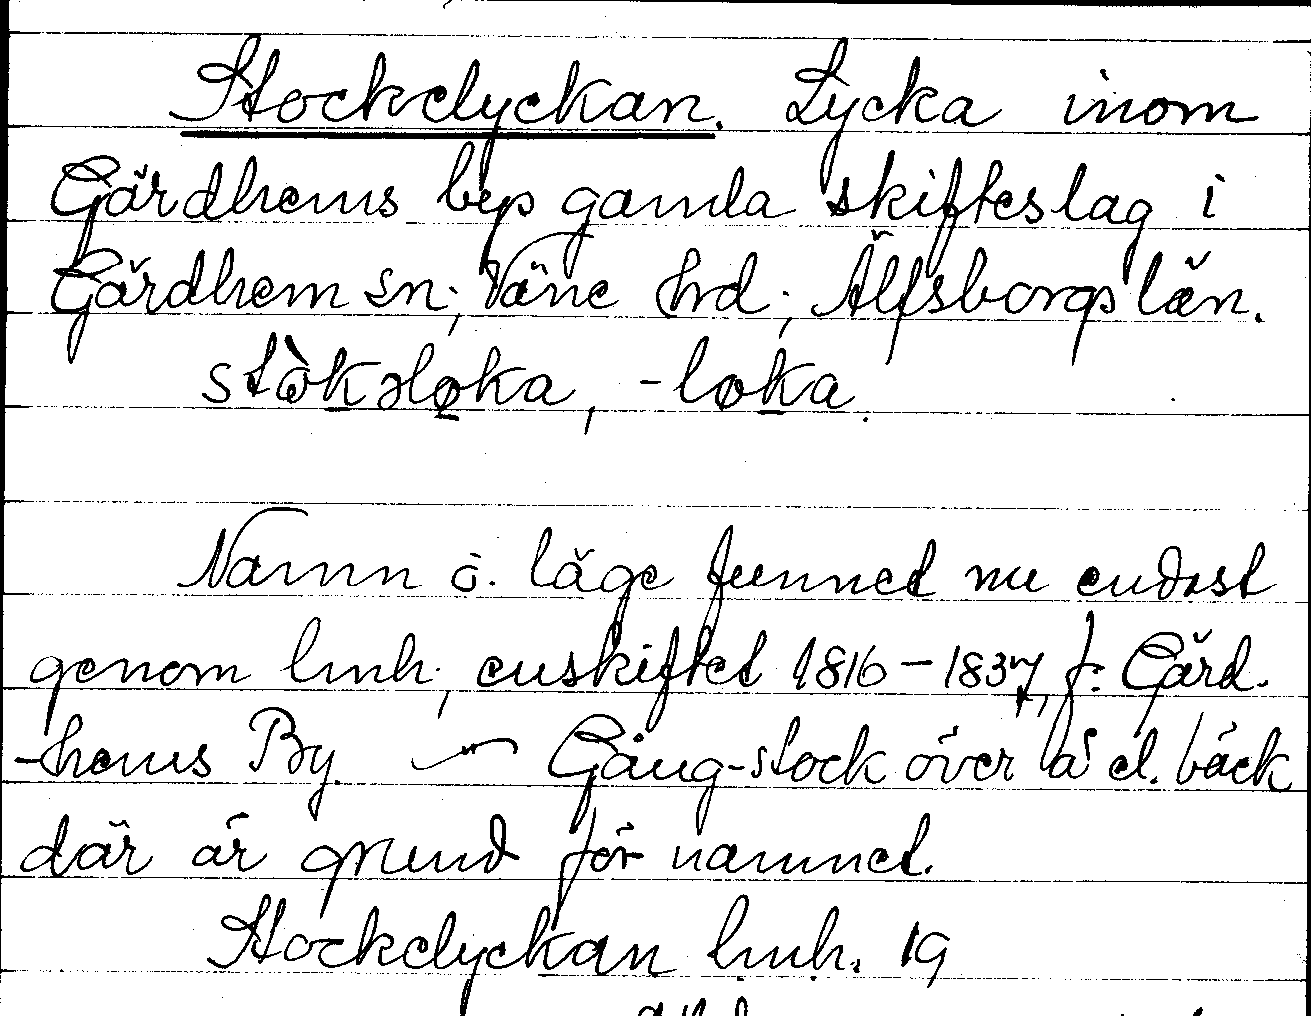 Stockelyckan. Lycka inom
Gärdhems bys gamla skifteslag i
Gärdhem sn; Väne hrd; Älfsborgs län.
stòkəloka, -loka.
Namn o. läge funnet nu endast
genom lmh; enskiftet 1816-1837, f. Gärd-
-hems By. Gång-stock över å el. bäck
där är grund för namnet.
Stockelyckan lmh. 19